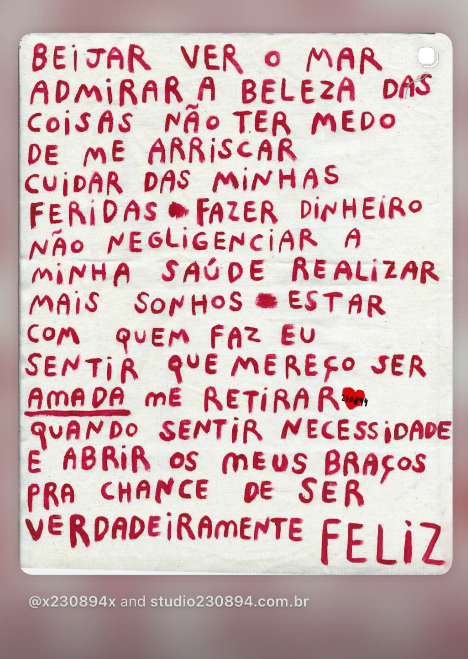 BEIJAR VER O MAR
ADMIRAR A BELEZA DAS
COISAS NÃO TER MEDO
DE ME ARRISCAR
CUIDAR DAS MINHAS
FERIDAS FAZER DINHEIRO
NÃO NEGLIGENCIAR A
MINHA SAÚDE REALIZAR
MAIS SONHOS ESTAR
COM QUEM FAZ EU
SENTIR QUE MEREÇO SER
AMADA ME RETIRAR 230894
QUANDO SENTIR NECESSIDADE
E ABRIR OS MEUS BRAÇOS
PRA CHANCE DE SER
VERDADEIRAMENTE FELIZ
@x230894x and studio230894.com.br